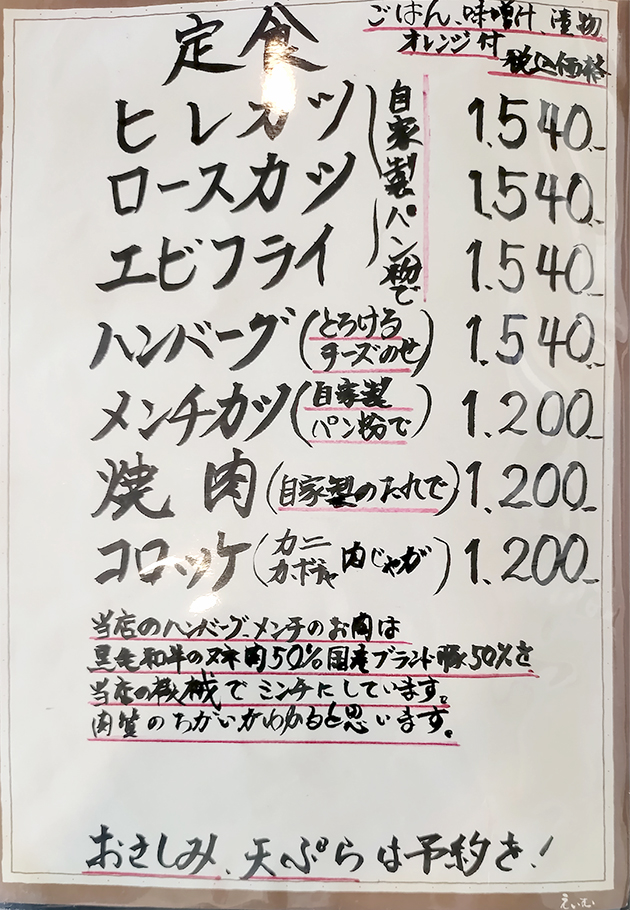 定食
ごはん、味噌汁、漬物
オレンジ付
税込価格
ヒレカツ 1.540.-
ロースカツ 1.540.-
エビフライ 1.540.-
自家製パン粉で
ハンバーグ(とろける 1.540.-
チーズのせ)
メンチカツ(自家製 1.200.-
パン粉で)
焼肉(自家製のたれで) 1.200-
コロッケ(カニ 肉じゃが) 1.200-
カボチャ
当店のハンバーグ、メンチのお肉は
黒毛和牛のスネ肉50%国産ブランド豚50%を
当店の機械でミンチにしています。
肉質のちがいがわかると思います。
おさしみ、天ぷらは予約を!
えいむ